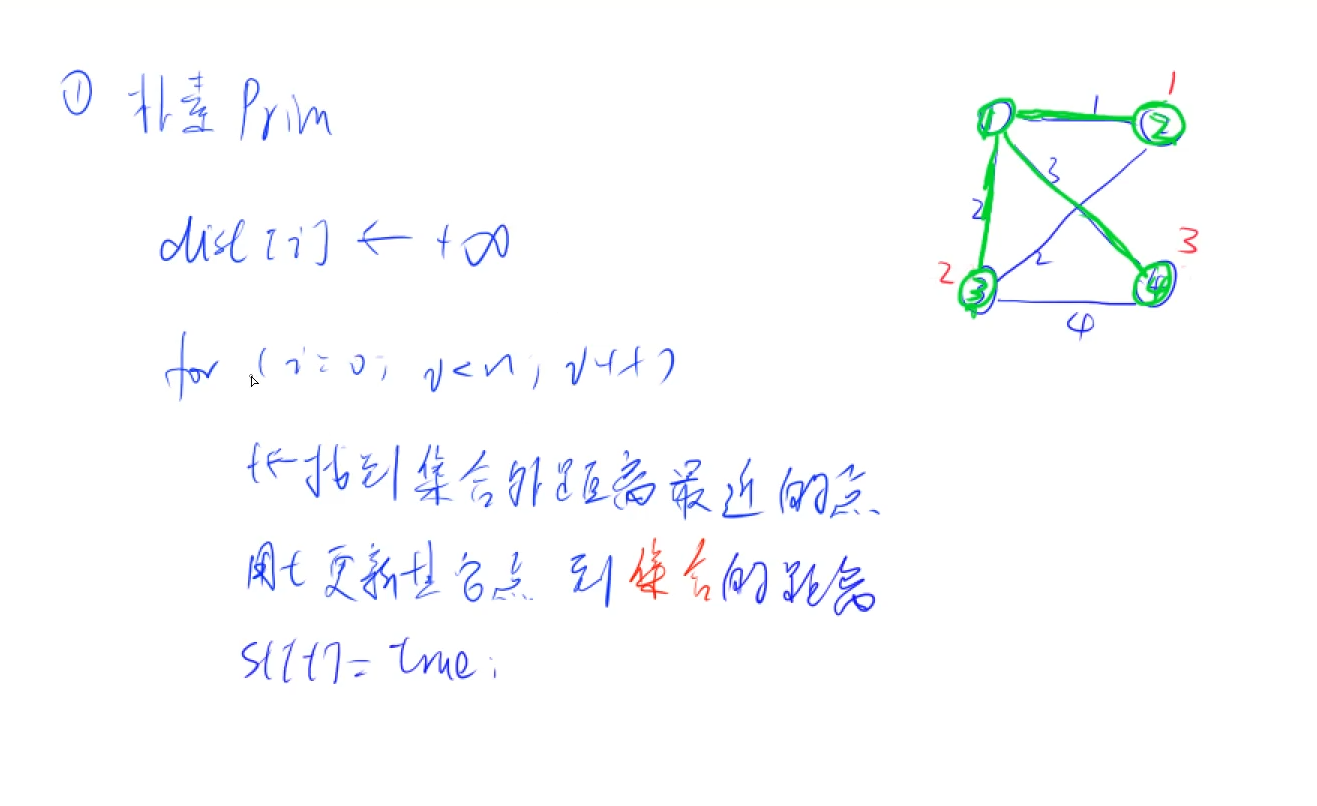 ① 朴素 Prim
dist[i] ← +∞
for (i=0; i<n; i++)
t←找到集合外距离最近的点
用t更新其它点 到集合的距离
st[t]=true;
1
1
2
3
2
2
3
2
3
4
4